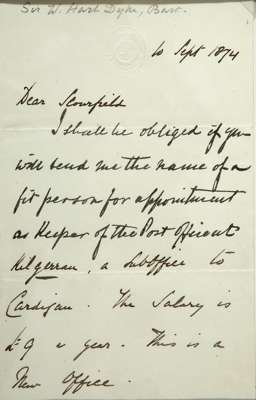 Sir W. Hart Dyke, Bart.
10 Sept 1874
Dear Scourfield
I shall be obliged if you
will send me the name of a
fit person for appointment
as Keeper of the Post Office at
Kilgerran, a Sub Office to
Cardigan. The Salary is
£9 a year. This is a
New Office.